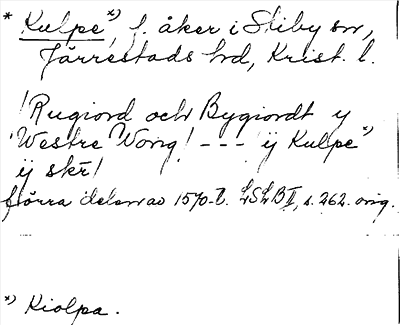 * Kulpe *), f. åker i Stiby sn,
Järrestads hd, Krist. l.
! Rugiord och Bygiordt y
Westre Wong! --- ij Kulpe *)
ij skr!
förra delen av 1570-t. LSLB II, s. 262. orig.
*) Kiolpa.